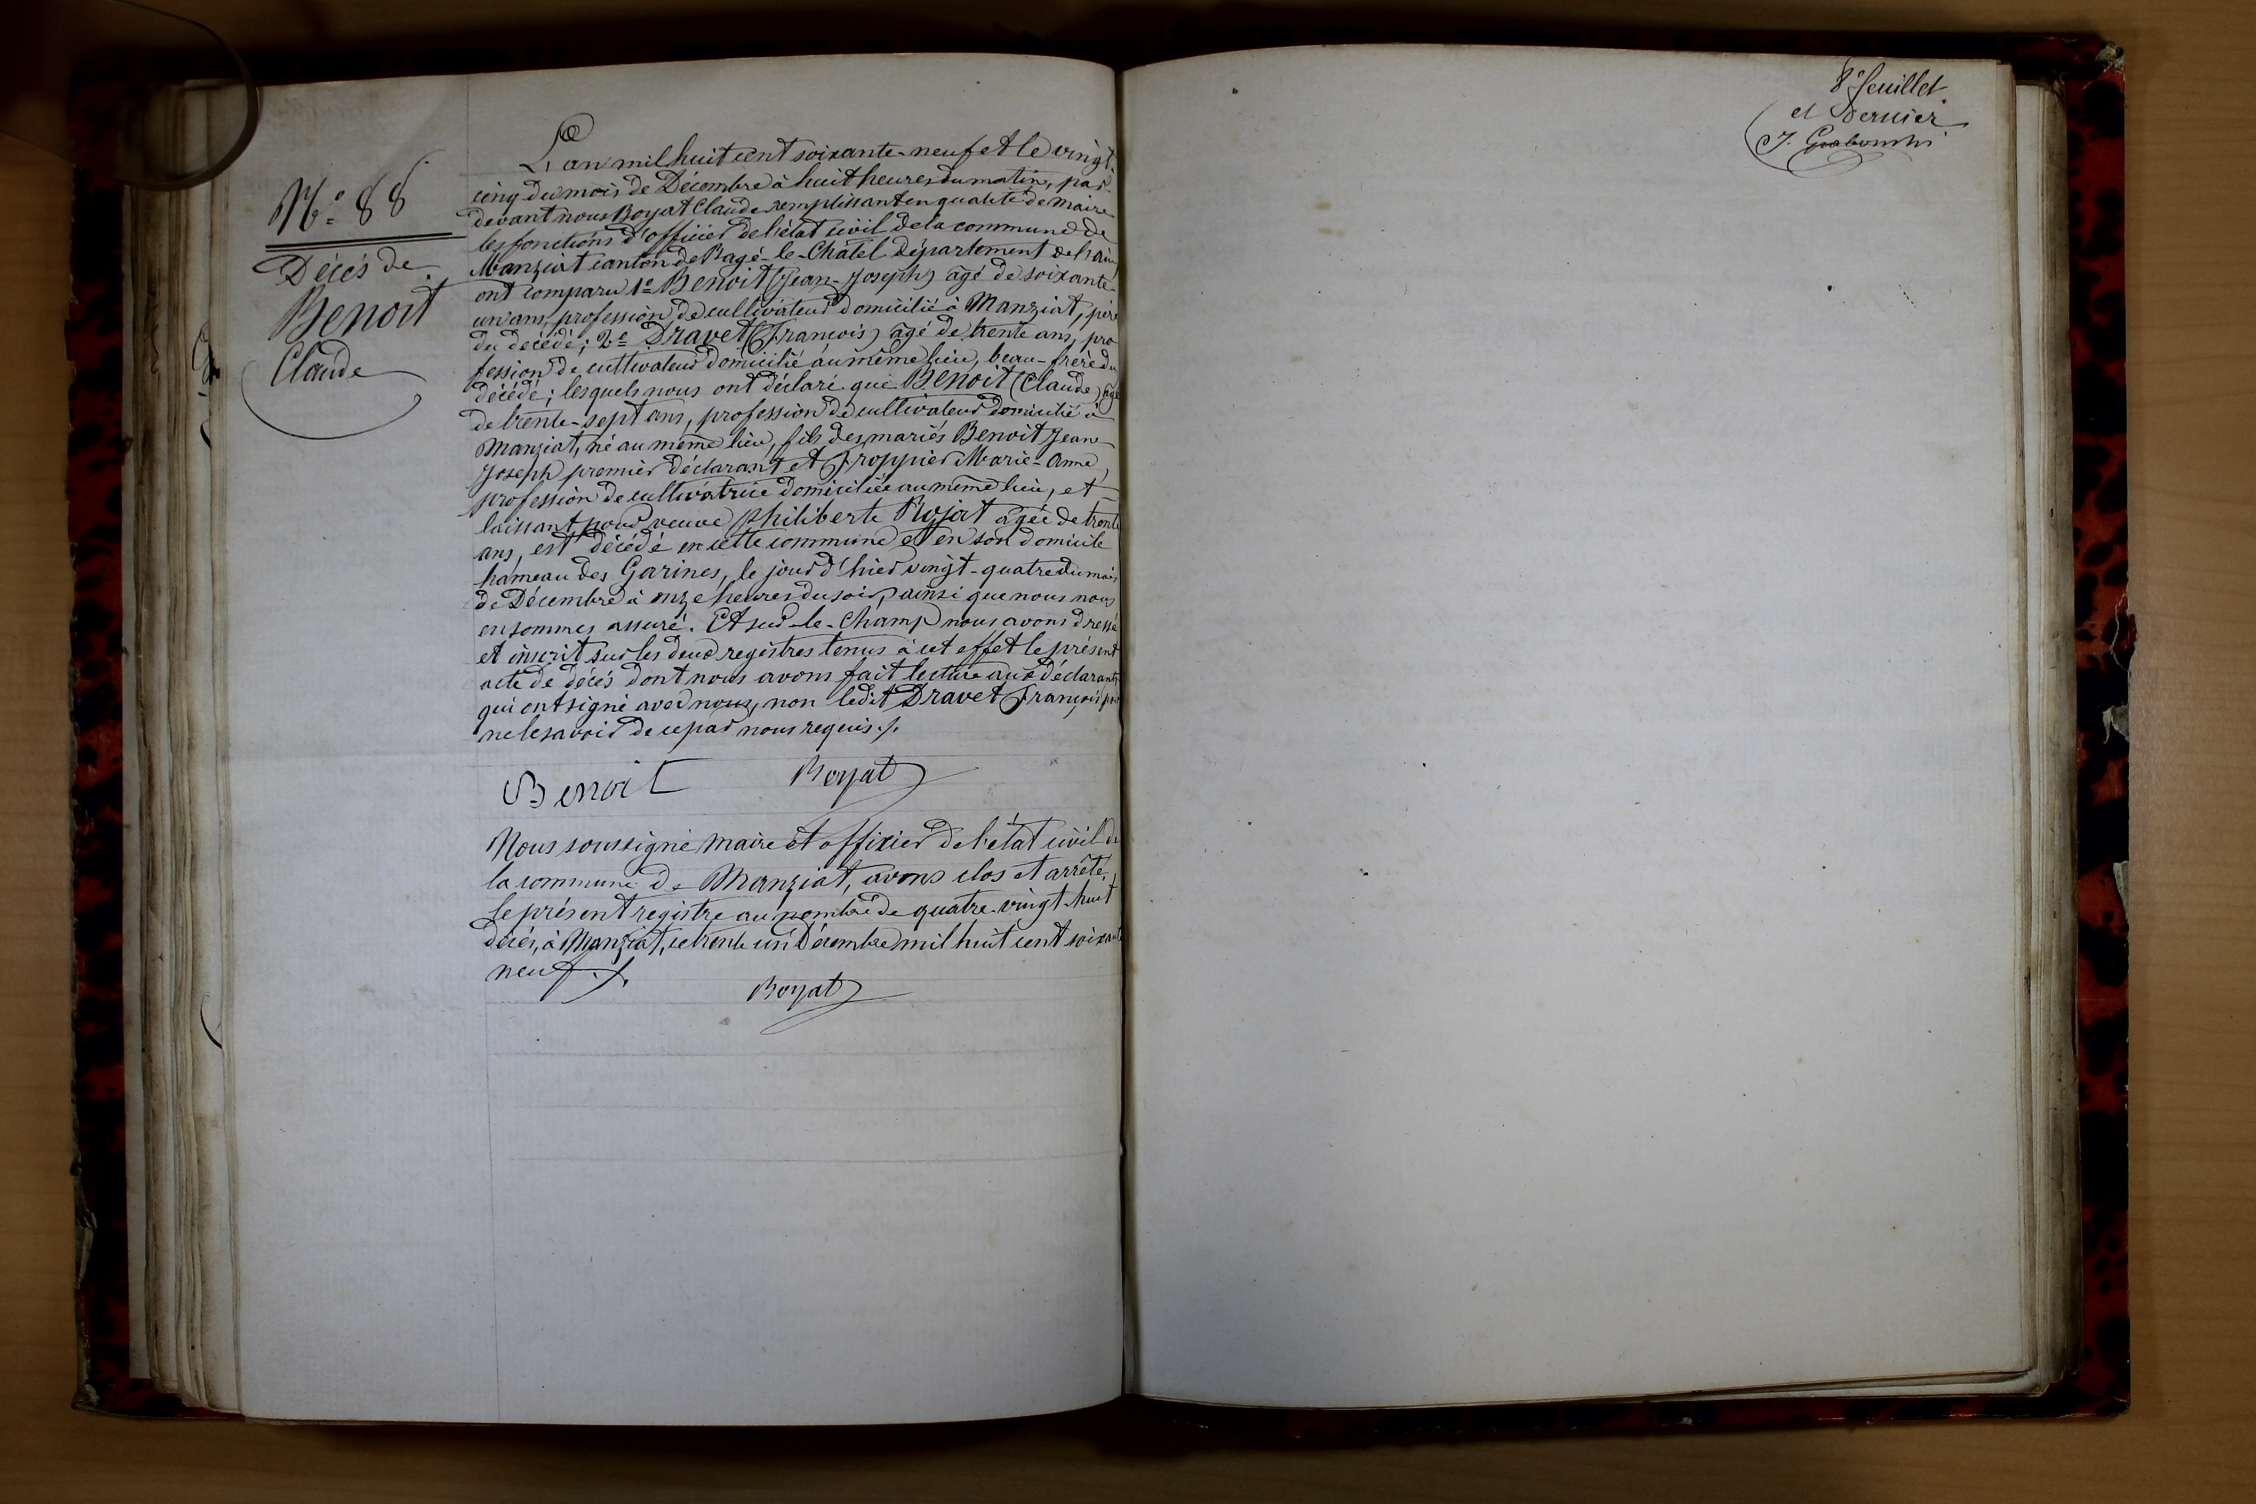 N.º 88
Décés de
Benoit
Claude
L'an mil huit cent soixante-neuf et le vingt-
cinq du mois de Décembre à huit heures du matin, par-
devant nous Boyat Claude remplissant en qualité de Maire
les fonctions d'officier de l'état civil de la commune de
Manziat canton de Bagé-le-Châtel Département de l'ain,
ont comparu 1º Benoit (Jean-Joseph) âgé de soixante-
un ans, profession de cultivateur domicilié à Manziat, père
du décédé; 2º Dravet (François) âgé de trente ans, pro
fession de cultivateur domicilié au même lieu, beau-frère du
décédé; lesquels nous ont déclaré que Benoit (Claude) âgé
de trente-sept ans, profession de cultivateur domicilié à
Manziat, né au même lieu, fils des mariés Benoit Jean
Joseph premier déclarant et Froppier Marie-Anne,
profession de cultivatrice domiciliée au même lieu, et
laissant pour veuve Philiberte Rojat âgée de trente
ans, est décédé en cette commune et en son domicile
hameau des Garines, le jour d'hier vingt-quatre du mois
de Décembre à onze heures du soir, ainsi que nous nous
en sommes assuré. Et sur-le-champ nous avons dressé
et inscrit sur les deux registres tenus à cet effet le présent
acte de décés dont nous avons fait lecture aux déclarants
qui ont signé avec nous, non ledit Dravet François pour
ne le savoir de ce par nous requis ./.
Benoit Boyat
Nous soussigné maire et officier de l'état civil de
la commune de Manziat, avons clos et arrêté,
le présent registre au nombre de quatre-vingt-huit
décés, à Manziat, le trente un Décembre mil huit cent soixante
neuf ./.
Boyat
8º feuillet
et Dernier